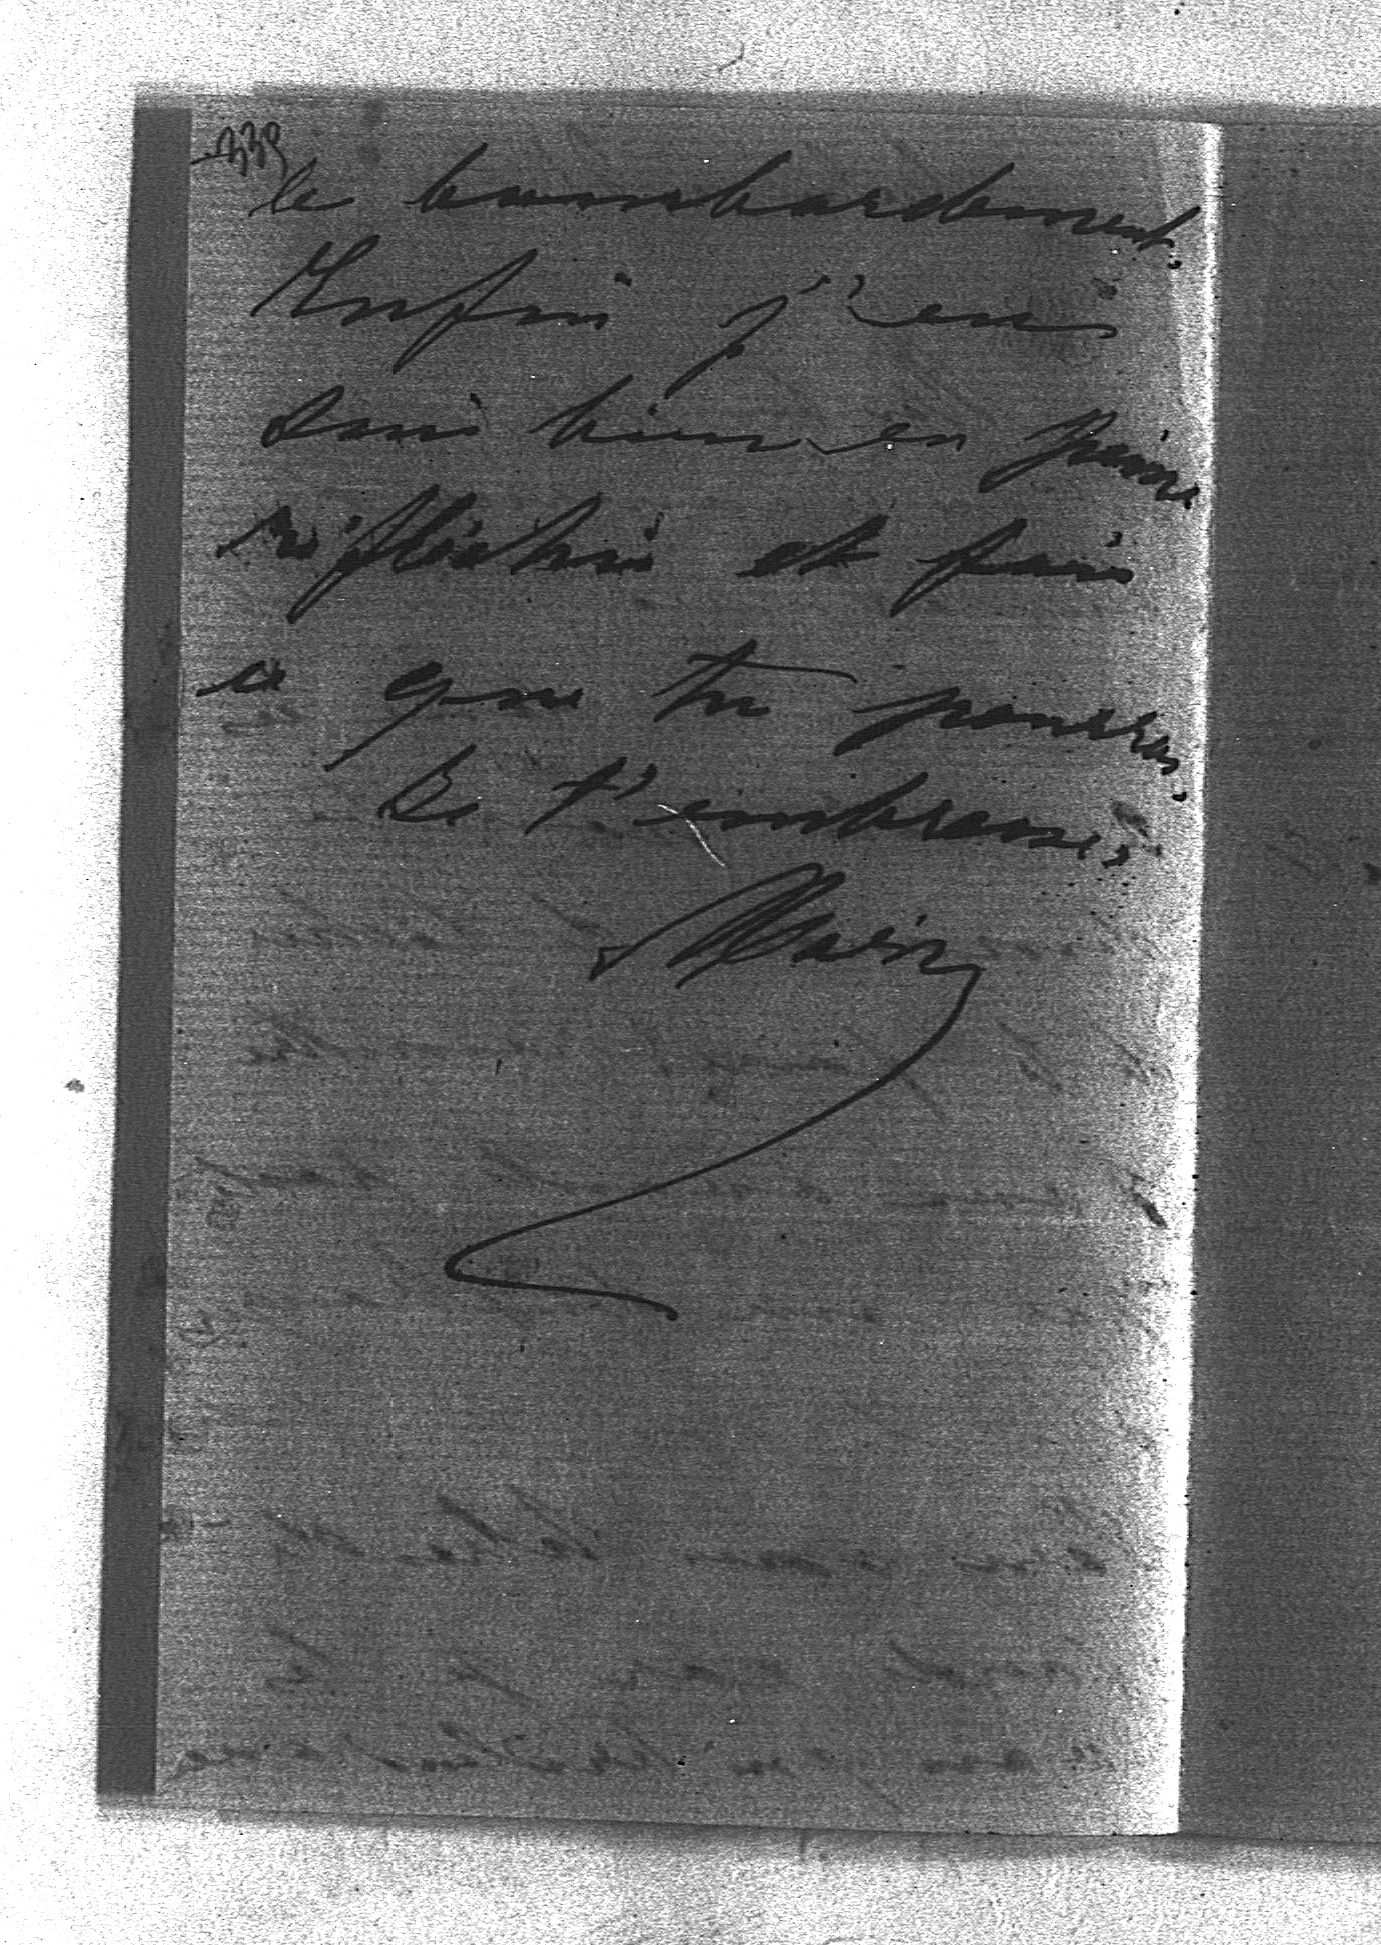 339
le bombardement.
Enfin j'en
suis bien en peine.
réfléchis et fais
ce que tu pourras.
Je t'embrasse.